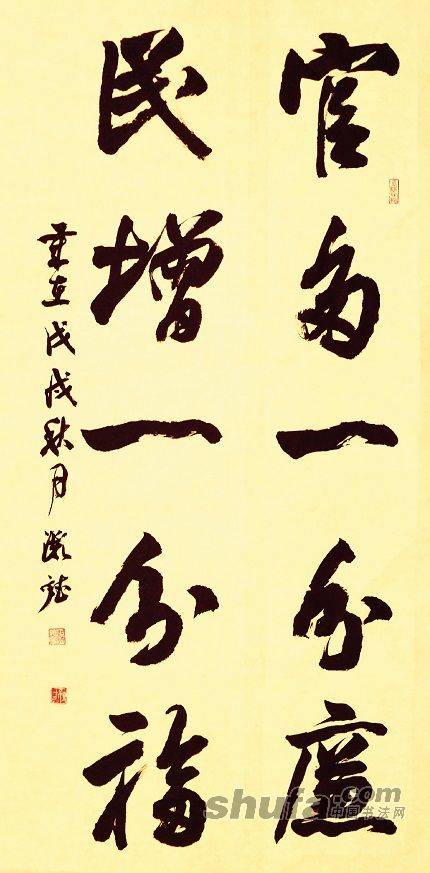 官多一分廉
民增一分福
岁在戊戌秋月
shufa.com
中国书法网